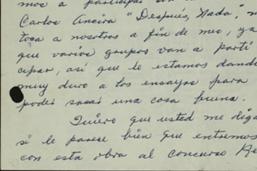 mos a participar en
Carlos Ancira "Después, Nada",
toca a nosotros a fin de mes, ya
que varios grupos van a parti
cipar, así que le estamos dando
muy duro a los ensayos para
poder sacar una cosa buena.
Quiero que usted me diga
si le parece bien que entremos
con esta obra al concurso